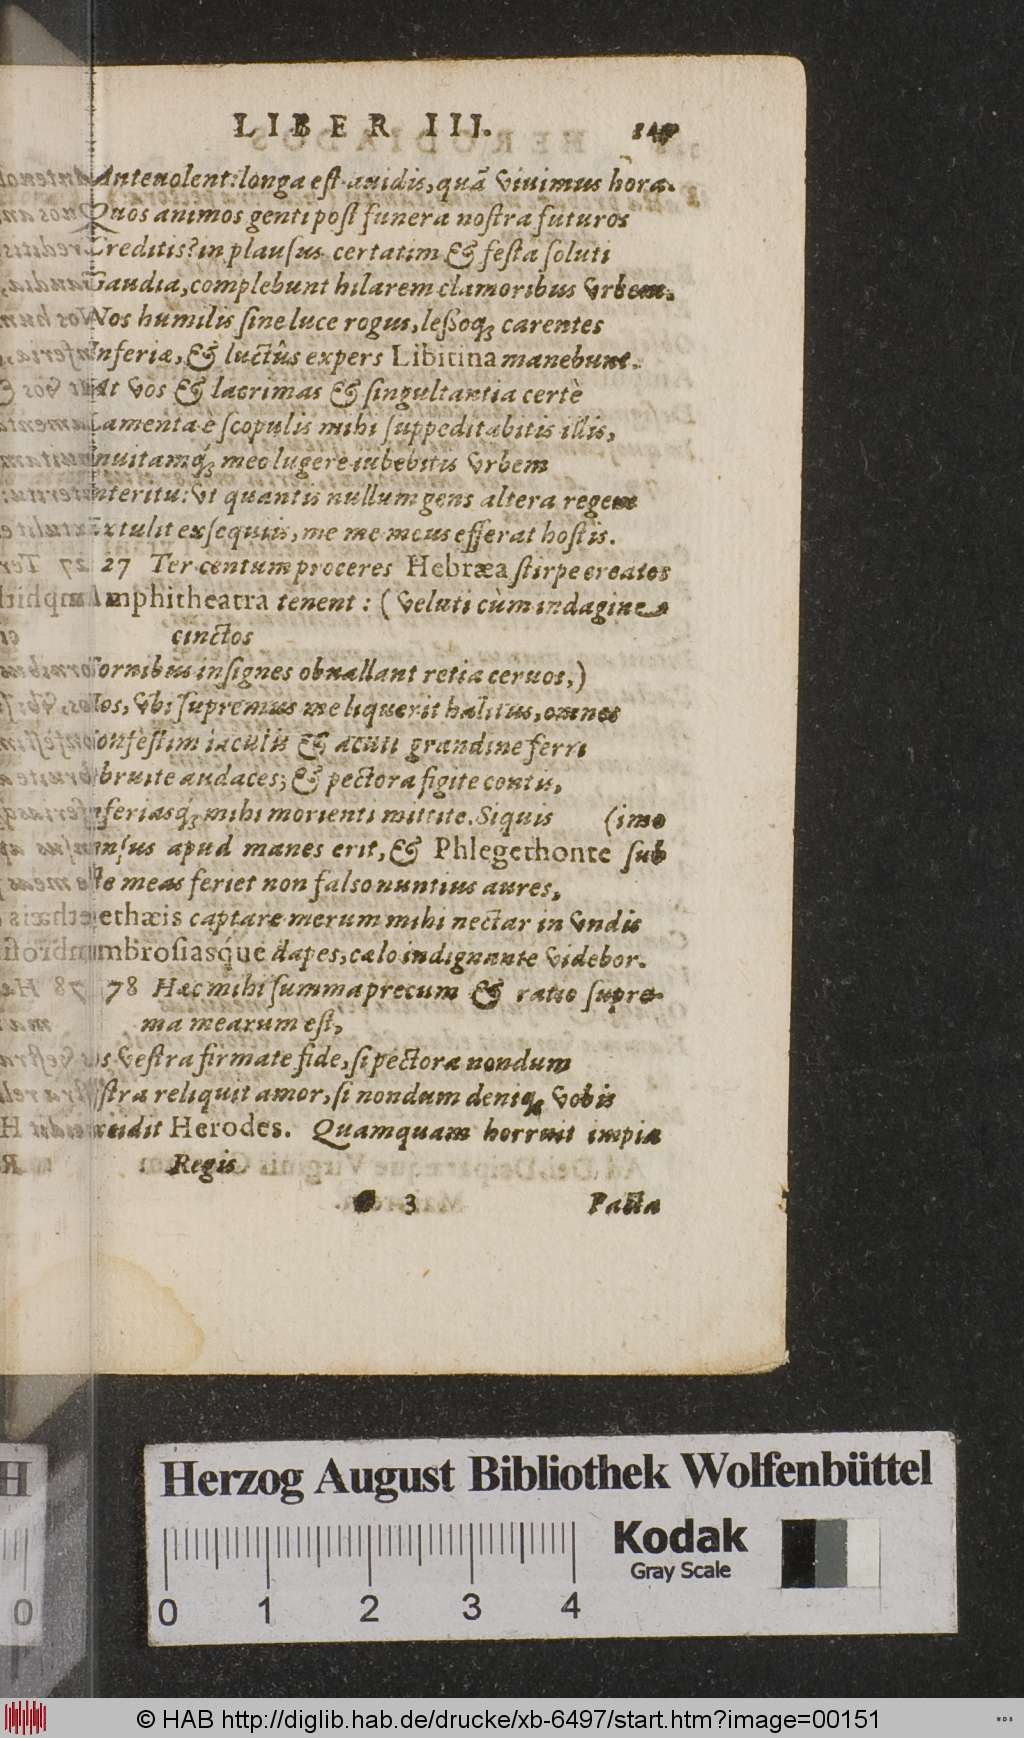 LIBER III.
Anteuolent: longa est auidis, quā viuimus hora.
Quos animos genti post funera nostra futuros
Creditis? in plausus certatim & festa soluti
Gaudia, complebunt hilarem clamoribus vrbem.
Nos humilis sine luce rogus, lessoq; carentes
Inferiæ, & luctûs expers Libitina manebunt.
At vos & lacrimas & singultantia certè
Lamenta è scopulis mihi suppeditabitis illis,
Inuitamq́; meo lugere iubebitis vrbem
Interitu: vt quantis nullum gens altera regem
Extulit exsequiis, me me meus efferat hostis.
27 Ter centum proceres Hebræa stirpe creatos
Amphitheatra tenent: (veluti cùm indagine
cinctos
Cornibus insignes obuallant retia ceruos,)
Hos, vbi supremus me liquerit halitus, omnes
Confestim iaculis & acuti grandine ferri
Obruite audaces; & pectora figite contis,
Inferiasq́; mihi morienti mittite. Siquis (imo
sus apud manes erit, & Phlegethonte sub
meas feriet non falso nuntius aures,
ethæis captare merum mihi nectar in vndis
Ambrosiasq́ue dapes, cælo indignante videbor.
78 Hæc mihi summa precum & ratio supre-
ma mearum est,
vestra firmate fide, si pectora nondum
stra reliquit amor, si nondum deniq; vobis
Excidit Herodes. Quamquam horruit impia
Regis
3 Pacta
Herzog August Bibliothek Wolfenbüttel
Kodak
Gray Scale
0 1 2 3 4
0
© HAB http://diglib.hab.de/drucke/xb-6497/start.htm?image=00151